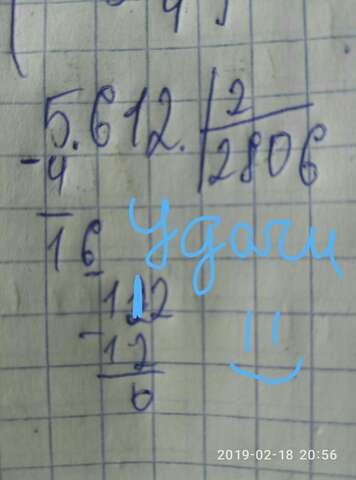 5.612. 2
- 4 2806
16 Удачи
112
- 12
0
2019-02-18 20:56